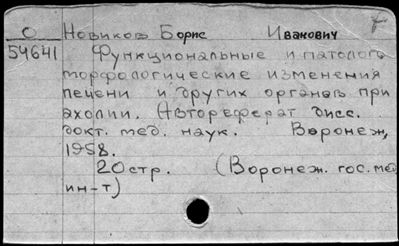 О Новиков Борис Иванович
54641 Функциональные и патолого
морфологические изменения
печени и других органов при
ахолии. Автореферат дисс.
докт. мед. наук. Воронеж,
1958.
20 стр. (Воронеж. гос. мед
ин-т)